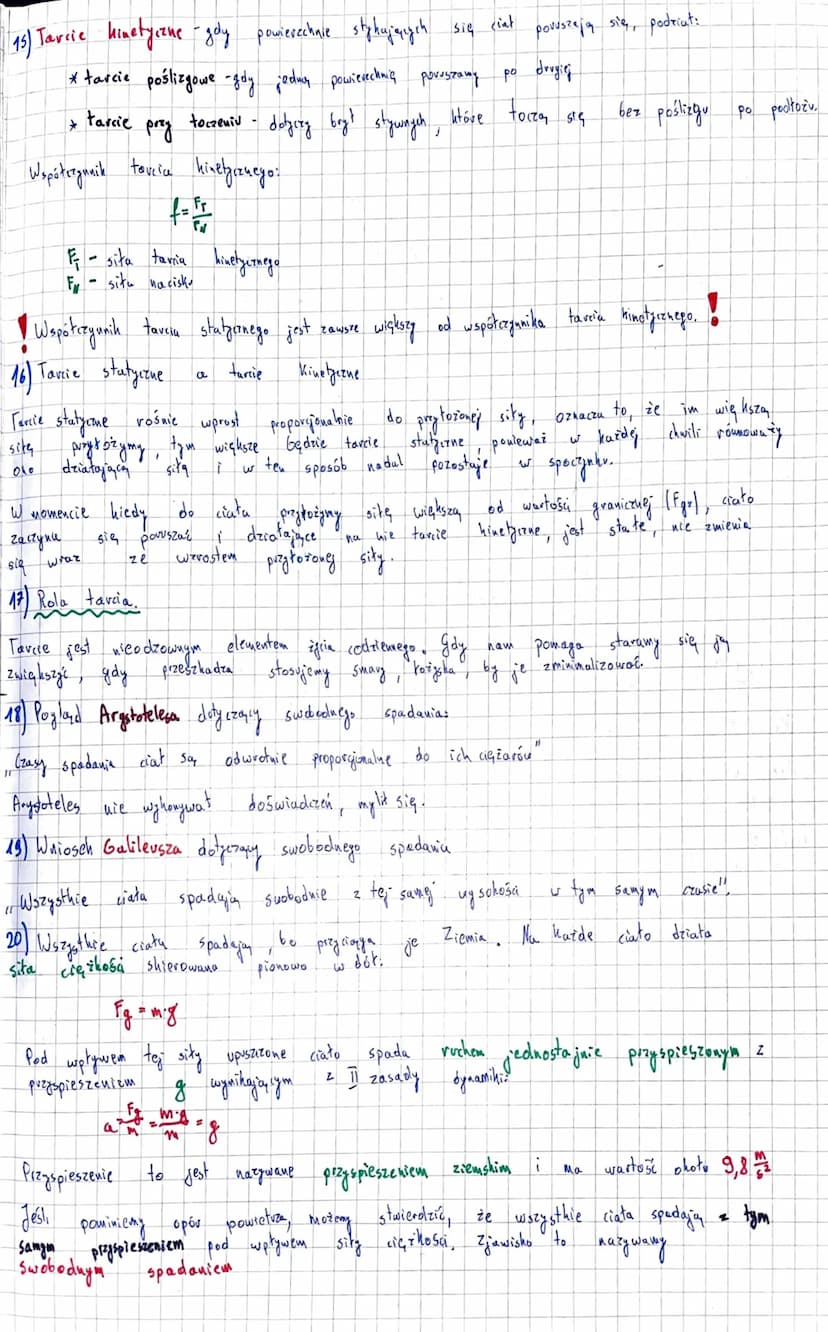 15) Tarcie kinetyczne - gdy powierzchnie stykających się ciał poruszają się, podział:
* tarcie poślizgowe - gdy jedną powierzchnią poruszamy po drugiej
* tarcie przy toczeniu - dotyczy brył sztywnych, które toczą się bez poślizgu po podłożu.
Współczynnik tarcia kinetycznego:
f = F_T / F_N
F_T - siła tarcia kinetycznego
F_N - siła nacisku
! Współczynnik tarcia statycznego jest zawsze większy od współczynnika tarcia kinetycznego. !
16) Tarcie statyczne a tarcie kinetyczne
Tarcie statyczne rośnie wprost proporcjonalnie do przyłożonej siły, oznacza to, że im większą
siłę przyłożymy, tym większe będzie tarcie statyczne, ponieważ w każdej chwili równoważy
ono działającą siłę i w ten sposób nadal pozostaje w spoczynku.
W momencie kiedy do ciała przyłożymy siłę większą od wartości granicznej (Fgr), ciało
zaczyna się poruszać i działające na nie tarcie kinetyczne, jest stałe, nie zmienia
się wraz ze wzrostem przyłożonej siły.
17) Rola tarcia.
Tarcie jest nieodzownym elementem życia codziennego. Gdy nam pomaga staramy się ją
zwiększyć, gdy przeszkadza stosujemy smary, łożyska, by je zminimalizować.
18) Pogląd Arystotelesa dotyczący swobodnego spadania:
„Czasy spadania ciał są odwrotnie proporcjonalne do ich ciężarów"
Arystoteles nie wykonywał doświadczeń, mylił się.
19) Wniosek Galileusza dotyczący swobodnego spadania
„Wszystkie ciała spadają swobodnie z tej samej wysokości w tym samym czasie".
20) Wszystkie ciała spadają, bo przyciąga je Ziemia. Na każde ciało działa
siła ciężkości skierowana pionowo w dół:
Fg = m·g
Pod wpływem tej siły upuszczone ciało spada ruchem jednostajnie przyspieszonym z
przyspieszeniem g wynikającym z II zasady dynamiki:
a = Fg/m = m·g/m = g
Przyspieszenie to jest nazywane przyspieszeniem ziemskim i ma wartość około 9,8 m/s²
Jeśli pominiemy opór powietrza, możemy stwierdzić, że wszystkie ciała spadają z tym
samym przyspieszeniem pod wpływem siły ciężkości. Zjawisko to nazywamy
swobodnym spadaniem